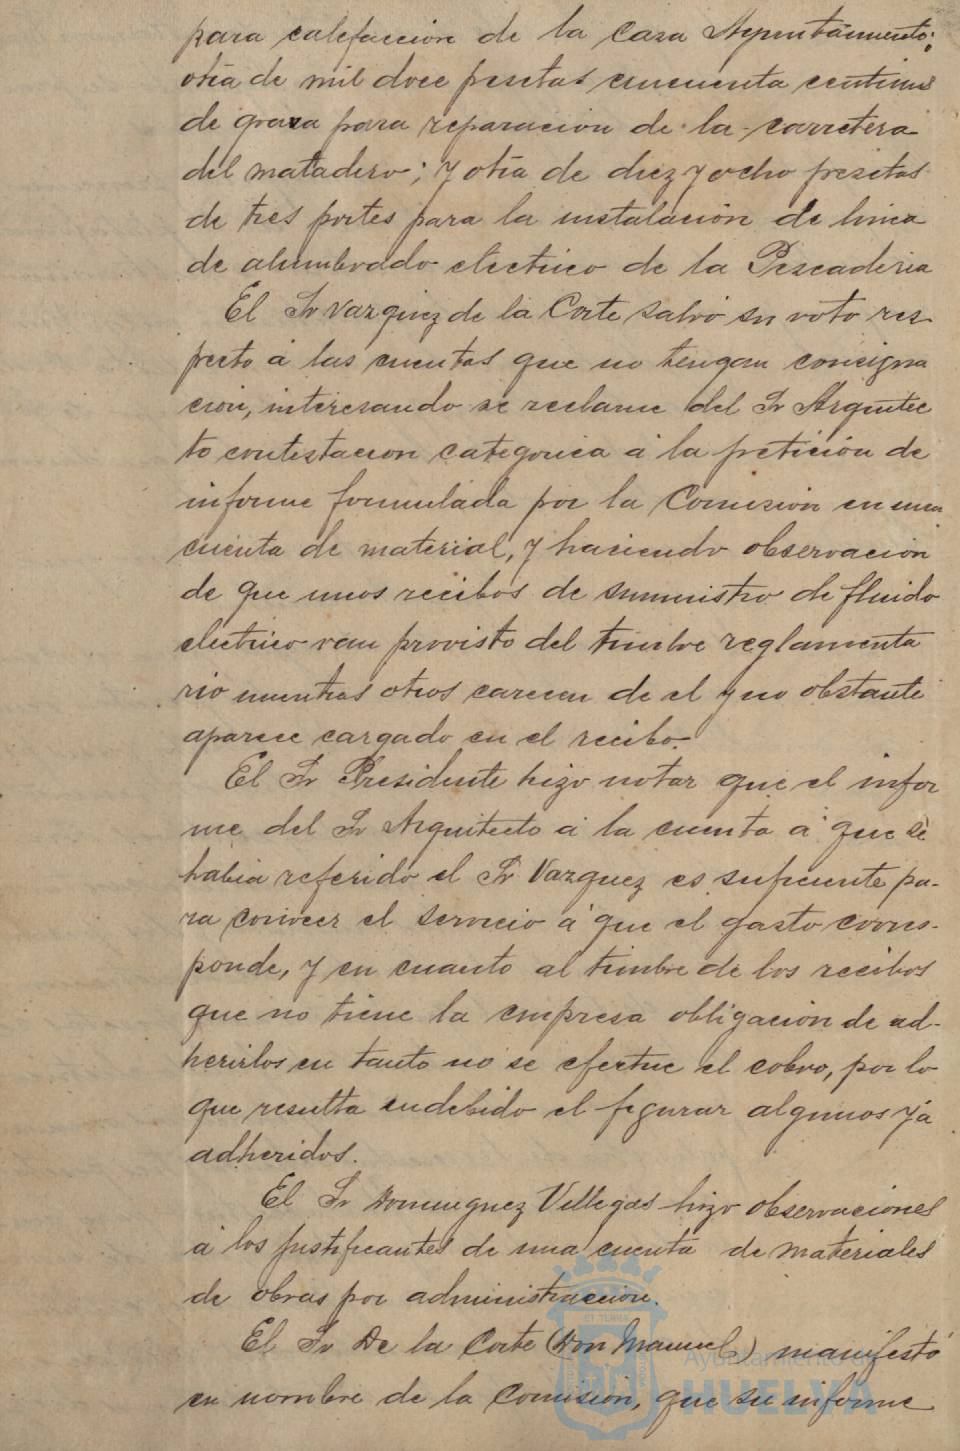 para calefacción de la casa Ayuntamiento;
otra de mil doce pesetas cincuenta centimos
de grava para reparacion de la carretera
del matadero; y otra de diez y ocho pesetas
de tres portes para la instalación de linea
de alumbrado electrico de la Pescaderia
El Sr Vazquez de la Corte salvó su voto res-
pecto á las cuentas que no tengan consigna
cion, interesando se reclame del Sr Arquitec
to contestacion categorica á la petición de
informe formulada por la Comision en una
cuenta de material, y haciendo observación
de que unos recibos de suministro de fluido
electrico van provisto del timbre reglamenta
rio mientras otros carecen de el y no obstante
aparece cargado en el recibo.
El Sr Presidente hizo notar que el infor
me del Sr Arquitecto á la cuenta á que se
habia referido el Sr Vazquez es suficiente pa-
ra conocer el servicio á que el gasto corres-
ponde, y en cuanto al timbre de los recibos
que no tiene la empresa obligación de ad-
herirlos en tanto no se efectue el cobro, por lo
que resulta indebido el figurar algunos yá
adheridos.
El Sr Dominguez Villegas hizo observaciones
á los justificantes de una cuenta de materiales
de obras por administración.
El Sr De la Corte (Don Manuel) manifestó
en nombre de la Comisión, que su informe
Ayuntamiento de
HUELVA